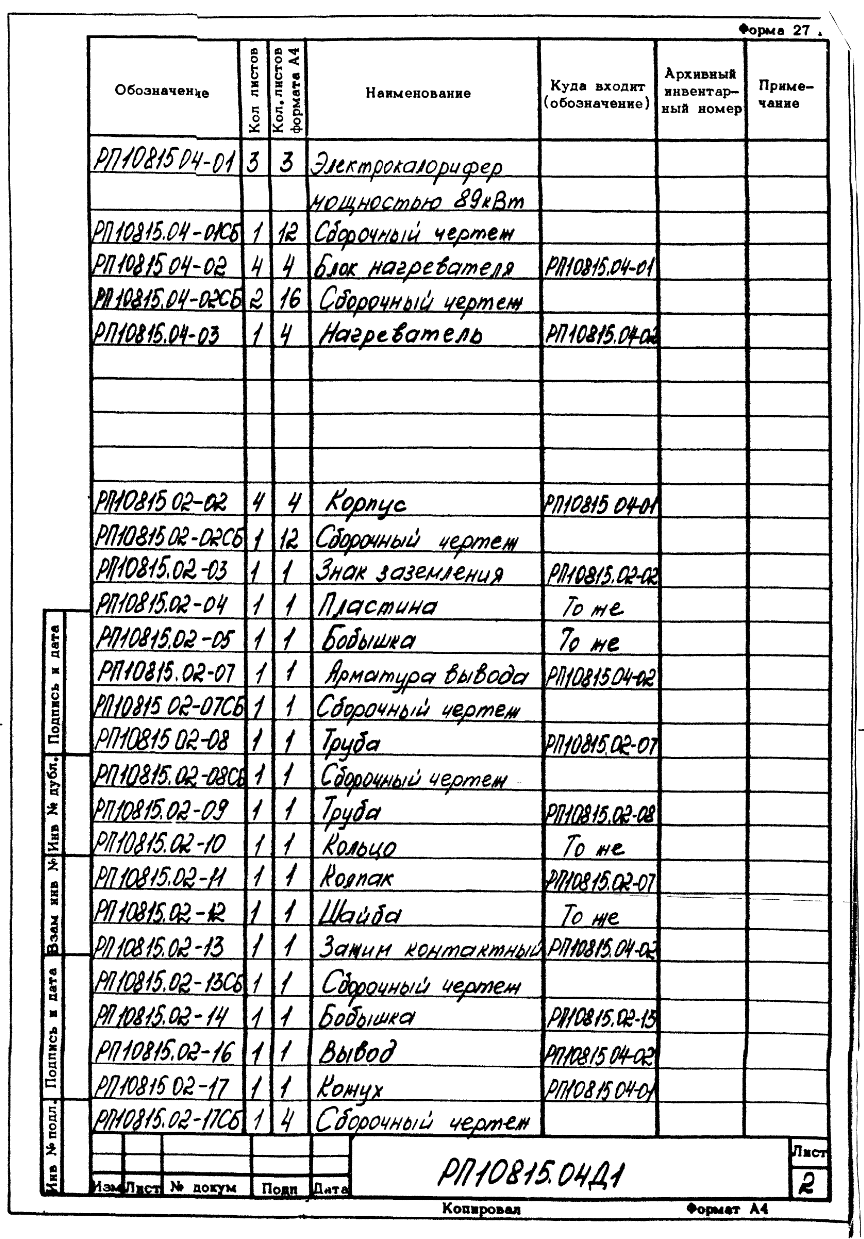 Форма 27
Обозначение | Кол листов | Кол. листов формата А4 | Наименование | Куда входит (обозначение) | Архивный инвентар-ный номер | Приме-чание
РП10815 04-01 3 3 Электрокалорифер
мощностью 89кВт
РП10815.04-01СБ 1 12 Сборочный чертеж
РП10815 04-02 4 4 Блок нагревателя РП10815.04-01
РП10815.04-02СБ 2 16 Сборочный чертеж
РП10815.04-03 1 4 Нагреватель РП10815.04-02
РП10815 02-02 4 4 Корпус РП10815 04-01
РП10815 02-02СБ 1 12 Сборочный чертеж
РП10815.02-03 1 1 Знак заземления РП10815.02-02
РП10815.02-04 1 1 Пластина То же
РП10815.02-05 1 1 Бобышка То же
РП10815.02-07 1 1 Арматура вывода РП10815.04-02
РП10815 02-07СБ 1 1 Сборочный чертеж
РП10815 02-08 1 1 Труба РП10815.02-07
РП10815.02-08СБ 1 1 Сборочный чертеж
РП10815.02-09 1 1 Труба РП10815.02-08
РП10815.02-10 1 1 Кольцо То же
РП10815.02-11 1 1 Колпак РП10815.02-07
РП10815.02-12 1 1 Шайба То же
РП10815.02-13 1 1 Зажим контактный РП10815.04-02
РП10815.02-13СБ 1 1 Сборочный чертеж
РП10815.02-14 1 1 Бобышка РП10815.02-13
РП10815.02-16 1 1 Вывод РП10815 04-02
РП10815 02-17 1 1 Кожух РП10815 04-01
РП10815.02-17СБ 1 4 Сборочный чертеж
Подпись и дата
Инв № дубл.
Взам инв №
Подпись и дата
Инв № подл.
Изм Лист № докум Подп Дата
РП10815.04Д1
Лист
2
Копировал Формат А4